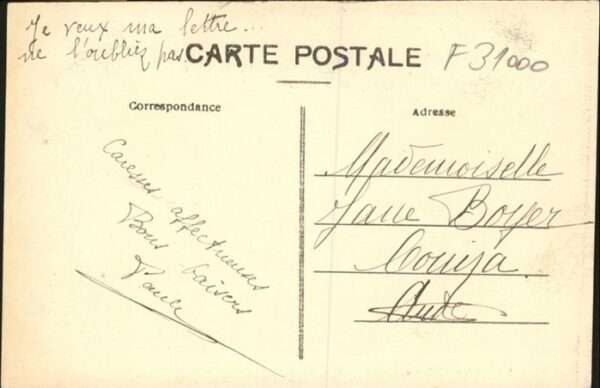 Je veux ma lettre...
ne l'oubliez pas.
CARTE POSTALE
F31000
Correspondance
Adresse
Caresses affectueuses
Bons baisers
Paule
Mademoiselle
Jane Boyer
Couiza
Aude